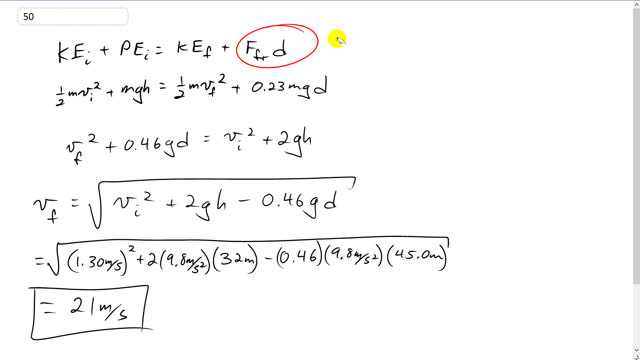 50
KEᵢ + PEᵢ = KE_f + F_fr d
½mvᵢ² + mgh = ½mv_f² + 0.23mgd
v_f² + 0.46gd = vᵢ² + 2gh
v_f = √(vᵢ² + 2gh − 0.46gd)
= √((1.30m/s)² + 2(9.8m/s²)(32m) − (0.46)(9.8m/s²)(45.0m))
= 21m/s